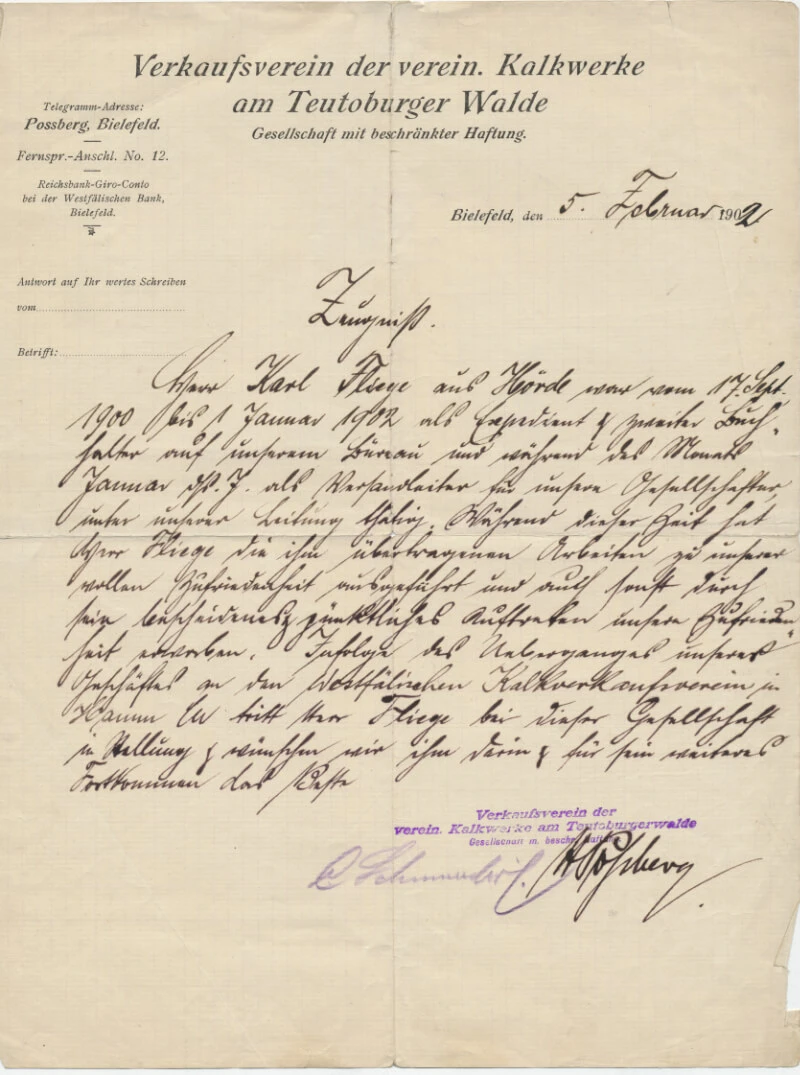 Verkaufsverein der verein. Kalkwerke
am Teutoburger Walde
Gesellschaft mit beschränkter Haftung.
Telegramm-Adresse:
Possberg, Bielefeld.
Fernspr.-Anschl. No. 12.
Reichsbank-Giro-Conto
bei der Westfälischen Bank,
Bielefeld.
Bielefeld, den 5. Februar 1902
Antwort auf Ihr wertes Schreiben
vom
Betrifft:
Zeugniß.
Herr Karl Fliege aus Hörde war vom 17. Sept.
1900 bis 1 Januar 1902 als Expedient & zweiter Buch-
halter auf unserem Bureau und während des Monats
Januar ds. J. als Versandleiter für unsere Gesellschafter,
unter unserer Leitung thätig. Während dieser Zeit hat
Herr Fliege die ihm übertragenen Arbeiten zu unserer
vollen Zufriedenheit ausgeführt und auch sonst durch
sein bescheidenes & pünktliches Auftreten unsere Zufrieden-
heit erworben. Infolge des Ueberganges unseres
Geschäftes an den Westfälischen Kalkverkaufsverein in
Hamm tritt Herr Fliege bei dieser Gesellschaft
in Stellung & wünschen wir ihm darin & für sein weiteres
Fortkommen das Beste
Verkaufsverein der
verein. Kalkwerke am Teutoburgerwalde
Gesellschaft m. beschr. Haftung
Possberg